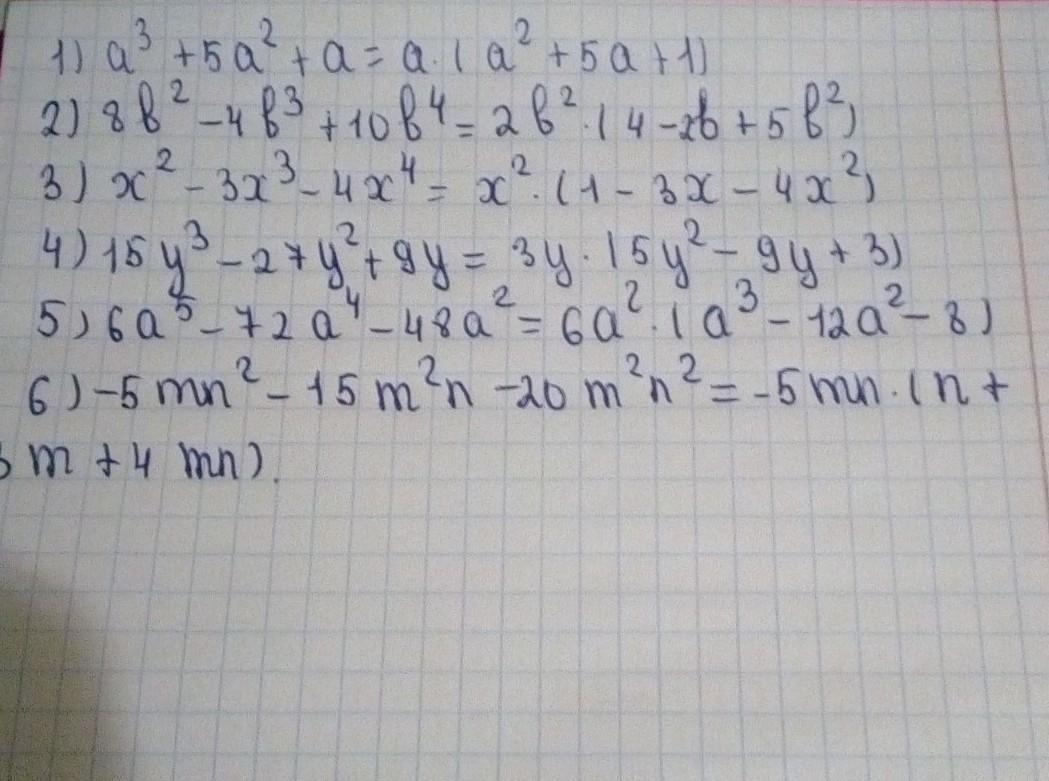 1) a³ + 5a² + a = a · (a² + 5a + 1)
2) 8b² - 4b³ + 10b⁴ = 2b² · (4 - 2b + 5b²)
3) x² - 3x³ - 4x⁴ = x² · (1 - 3x - 4x²)
4) 15y³ - 27y² + 9y = 3y · (5y² - 9y + 3)
5) 6a⁵ - 72a⁴ - 48a² = 6a² · (a³ - 12a² - 8)
6) -5mn² - 15m²n - 20m²n² = -5mn · (n +
3m + 4mn).